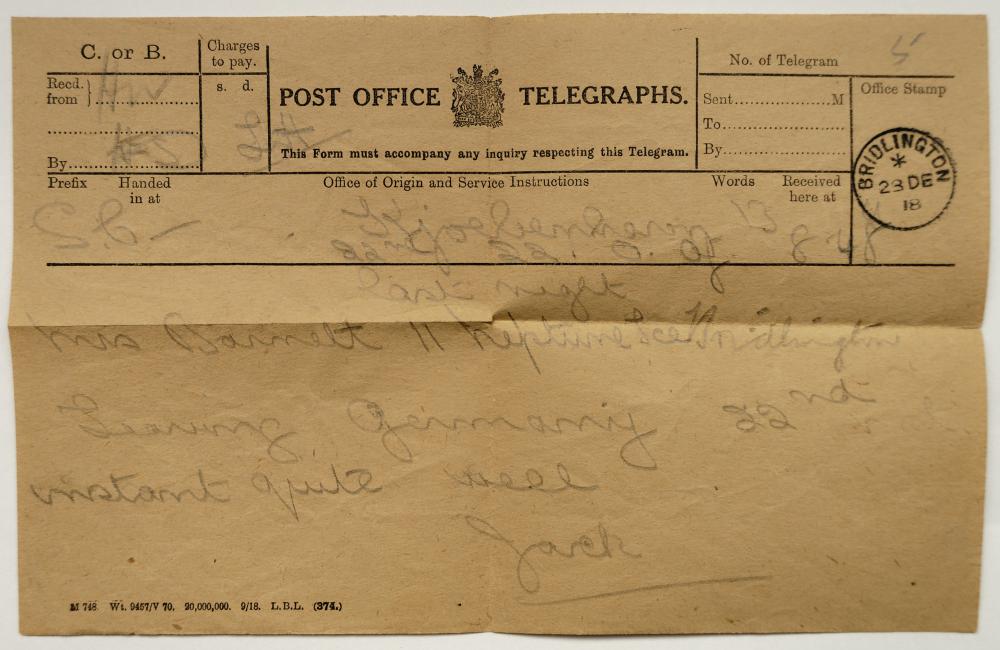 C. or B.
Charges
to pay.
s. d.
Recd.
from
By
POST OFFICE TELEGRAPHS.
This Form must accompany any inquiry respecting this Telegram.
No. of Telegram 5
Sent M
To
By
Office Stamp
BRIDLINGTON
*
23 DE
18
Prefix Handed in at
Office of Origin and Service Instructions
Words Received here at
Kjoebenhavn 13 8.48
last night
Mrs Barnett 11 Neptune Tce Bridlington
Leaving Germany 22nd
instant quite well
Jack
M 748 Wt. 9457/V 70. 20,000,000. 9/18. L.B.L. (374.)